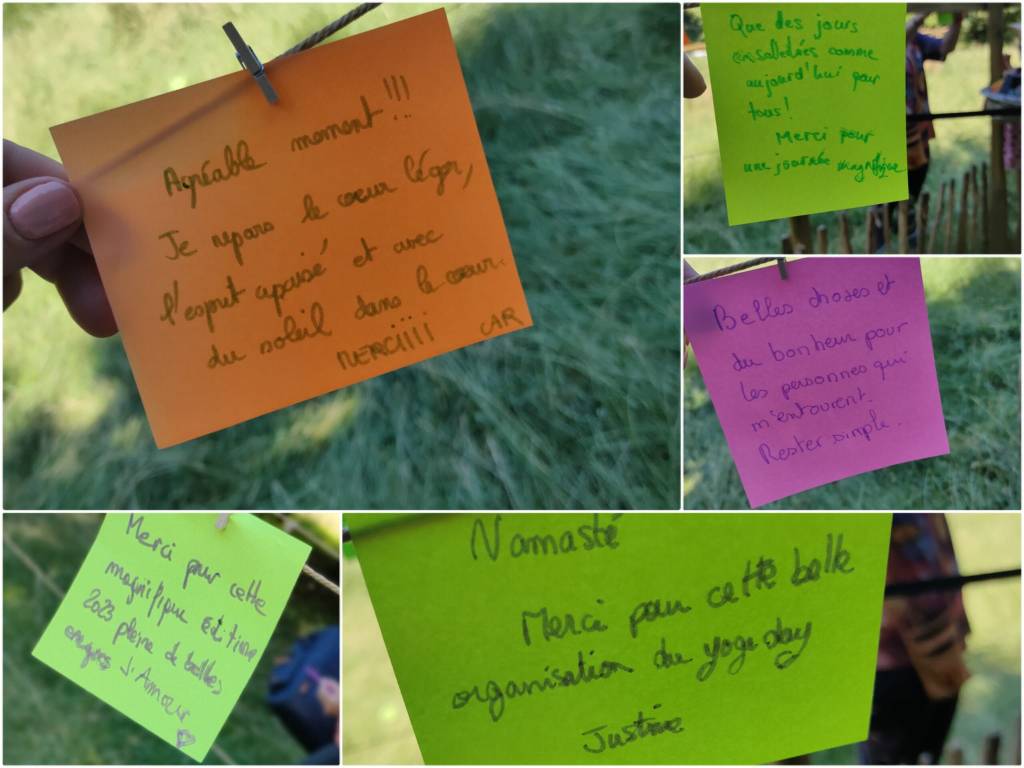 Agréable moment !!!
Je repars le cœur léger,
l'esprit apaisé et avec
du soleil dans le cœur.
MERCI!!!!
CAR
Que des jours
ensoleillés comme
aujourd'hui pour
tous!
Merci pour
une journée magnifique
Belles choses et
du bonheur pour
les personnes qui
m'entourent.
Rester simple.
Merci pour cette
magnifique édition
2023 pleine de belles
énergies d'Amour
Namasté
Merci pour cette belle
organisation du yoga day
Justine